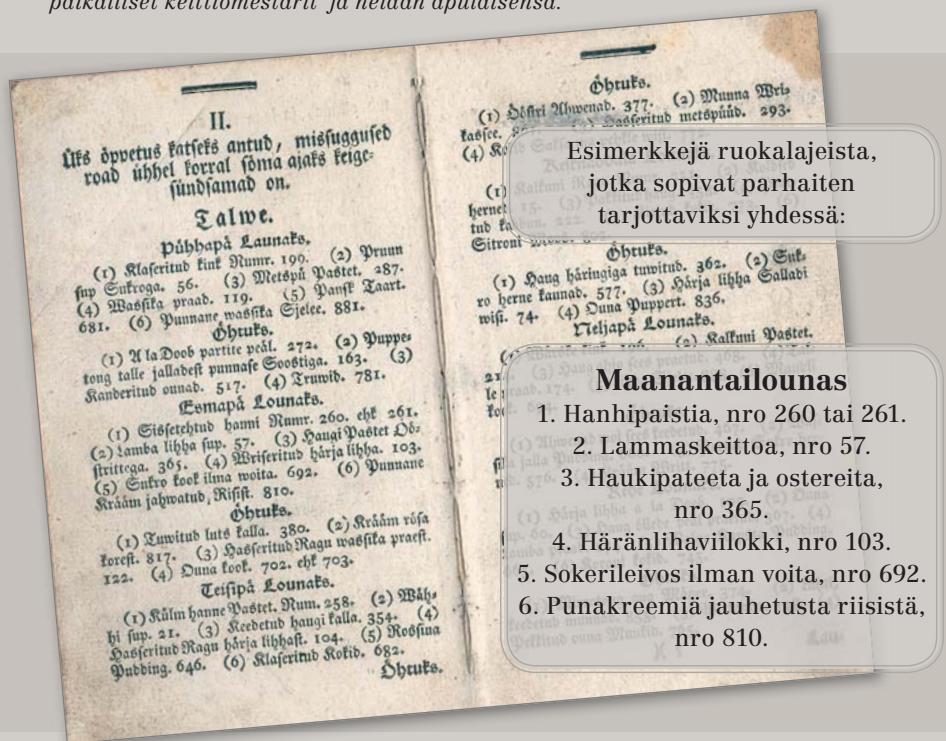 paikalliset keittiömestarit ja heidän apulaisensa.
II.
Üks öppetus katseks antud, missuggused
road ühhel korral söma ajaks keige-
sündsamad on.
Talwe.
Pühhapä Launaks.
(1) Klaseritud kink Numr. 199. (2) Pruun
sup Sukroga. 56. (3) Metspü Pastet. 287.
(4) Wassika praad. 119. (5) Pansk Taart.
681. (6) Punnane wassika Sjelee. 881.
Öhtuks.
(1) A la Doob partite peäl. 272. (2) Puppe-
tong talle jalladest punnase Soostiga. 163. (3)
Kanderitud onnad. 517. (4) Truwid. 781.
Esmapä Lounaks.
(1) Sissetehtud hanni Numr. 260. ehk 261.
(2) Lamba lihha sup. 57. (3) Haugi Pastet Öö-
strittega. 365. (4) Wriseritud härja lihha. 103.
(5) Sukro kook ilma woita. 692. (6) Punnane
Krääm jahwatud, Risist. 810.
Öhtuks.
(1) Tuwitud luts kalla. 380. (2) Krääm rösa
korest. 817. (3) Hasseritud Ragu wassika praest.
122. (4) Ouna kook. 702. ehk 703.
Teisipä Lounaks.
(1) Külm hanne Pastet. Num. 258. (2) Wäh-
hi sup. 21. (3) Keedetud haugi kalla. 354. (4)
Hasseritud Ragu härja lihhast. 104. (5) Rosina
Pudding. 646. (6) Klaseritud Kokid. 682.
Öhtuks.
Öhtuks.
(1) Ööstri Ahwenad. 377. (2) Munna Wri-
kassee. (3) Hasseritud metspüüd. 293.
(4)
Öhtuks.
(1) Haug häringiga tuwitud. 362. (2) Suk-
ro herne kaunad. 577. (3) Härja lihha Salladi
wisi. 74. (4) Ouna Puppert. 836.
Neljapä Lounaks.
(2) Kalkuni Pastet.
Esimerkkejä ruokalajeista,
jotka sopivat parhaiten
tarjottaviksi yhdessä:
Maanantailounas
1. Hanhipaistia, nro 260 tai 261.
2. Lammaskeittoa, nro 57.
3. Haukipateeta ja ostereita,
nro 365.
4. Häränlihaviilokki, nro 103.
5. Sokerileivos ilman voita, nro 692.
6. Punakreemiä jauhetusta riisistä,
nro 810.